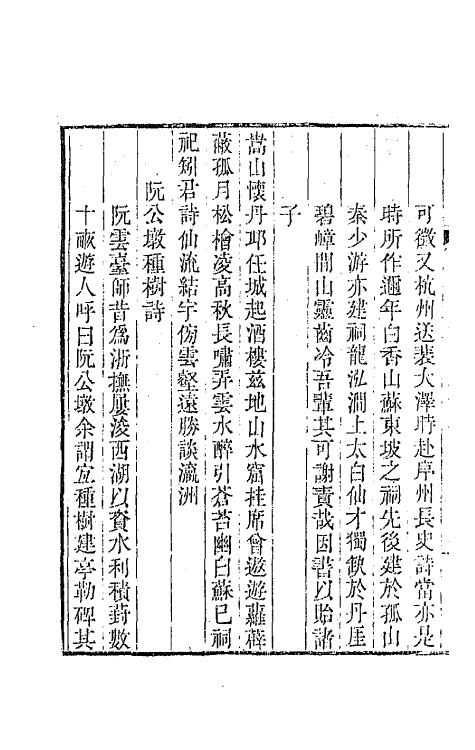 可徵又杭州送裴大澤時赴廬州長史詩當亦是
時所作邇年白香山蘇東坡之祠先後建於孤山
秦少游亦建祠龍泓澗上太白仙才獨缺於丹厓
碧嶂間山靈齒冷吾輩其可謝責哉因書以貽諸
子
嵩山懷丹邱任城起酒樓玆地山水窟挂席曾遨遊蘿薜
蔽孤月松檜凌高秋長嘯弄雲水醉引蒼苔幽白蘇已祠
祀矧君詩仙流結宇傍雲壑遠勝談瀛洲
阮公墩種樹詩
阮雲臺師昔爲浙撫屢浚西湖以資水利積葑數
十畝遊人呼曰阮公墩余謂宜種樹建亭勒碑其